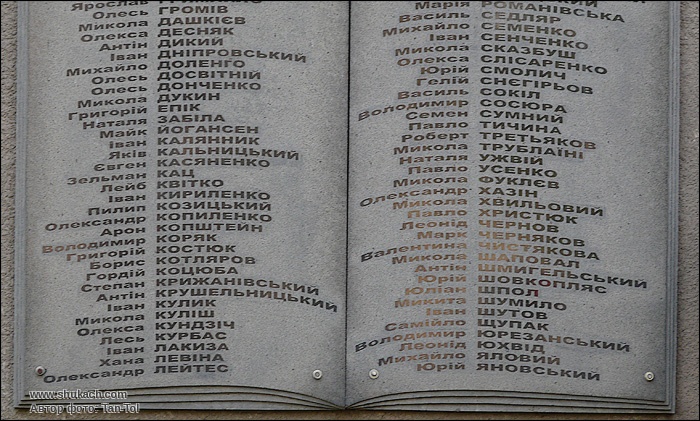 Ярослав
Олесь ГРОМІВ
Микола ДАШКІЄВ
Олекса ДЕСНЯК
Антін ДИКИЙ
Іван ДНІПРОВСЬКИЙ
Михайло ДОЛЕНГО
Олесь ДОСВІТНІЙ
Олесь ДОНЧЕНКО
Микола ДУКИН
Григорій ЕПІК
Наталя ЗАБІЛА
Майк ЙОГАНСЕН
Іван КАЛЯННИК
Яків КАЛЬНИЦЬКИЙ
Євген КАСЯНЕНКО
Зельман КАЦ
Лейб КВІТКО
Іван КИРИЛЕНКО
Пилип КОЗИЦЬКИЙ
Олександр КОПИЛЕНКО
Арон КОПШТЕЙН
Володимир КОРЯК
Григорій КОСТЮК
Борис КОТЛЯРОВ
Гордій КОЦЮБА
Степан КРИЖАНІВСЬКИЙ
Антін КРУШЕЛЬНИЦЬКИЙ
Іван КУЛИК
Микола КУЛІШ
Олекса КУНДЗІЧ
Лесь КУРБАС
Іван ЛАКИЗА
Хана ЛЕВІНА
Олександр ЛЕЙТЕС
Марія РОМАНІВСЬКА
Василь СЕДЛЯР
Михайло СЕМЕНКО
Іван СЕНЧЕНКО
Микола СКАЗБУШ
Олекса СЛІСАРЕНКО
Юрій СМОЛИЧ
Гелій СНЄГІРЬОВ
Василь СОКІЛ
Володимир СОСЮРА
Семен СУМНИЙ
Павло ТИЧИНА
Роберт ТРЕТЬЯКОВ
Микола ТРУБЛАЇНІ
Наталя УЖВІЙ
Павло УСЕНКО
Микола ФУКЛЄВ
Олександр ХАЗІН
Микола ХВИЛЬОВИЙ
Павло ХРИСТЮК
Леонід ЧЕРНОВ
Марк ЧЕРНЯКОВ
Валентина ЧИСТЯКОВА
Микола ШАПОВАЛ
Антін ШМИГЕЛЬСЬКИЙ
Юрій ШОВКОПЛЯС
Юліан ШПОЛ
Микита ШУМИЛО
Іван ШУТОВ
Самійло ЩУПАК
Володимир ЮРЕЗАНСЬКИЙ
Леонід ЮХВІД
Михайло ЯЛОВИЙ
Юрій ЯНОВСЬКИЙ
www.shukach.com
Автор фото: Tan-Tol